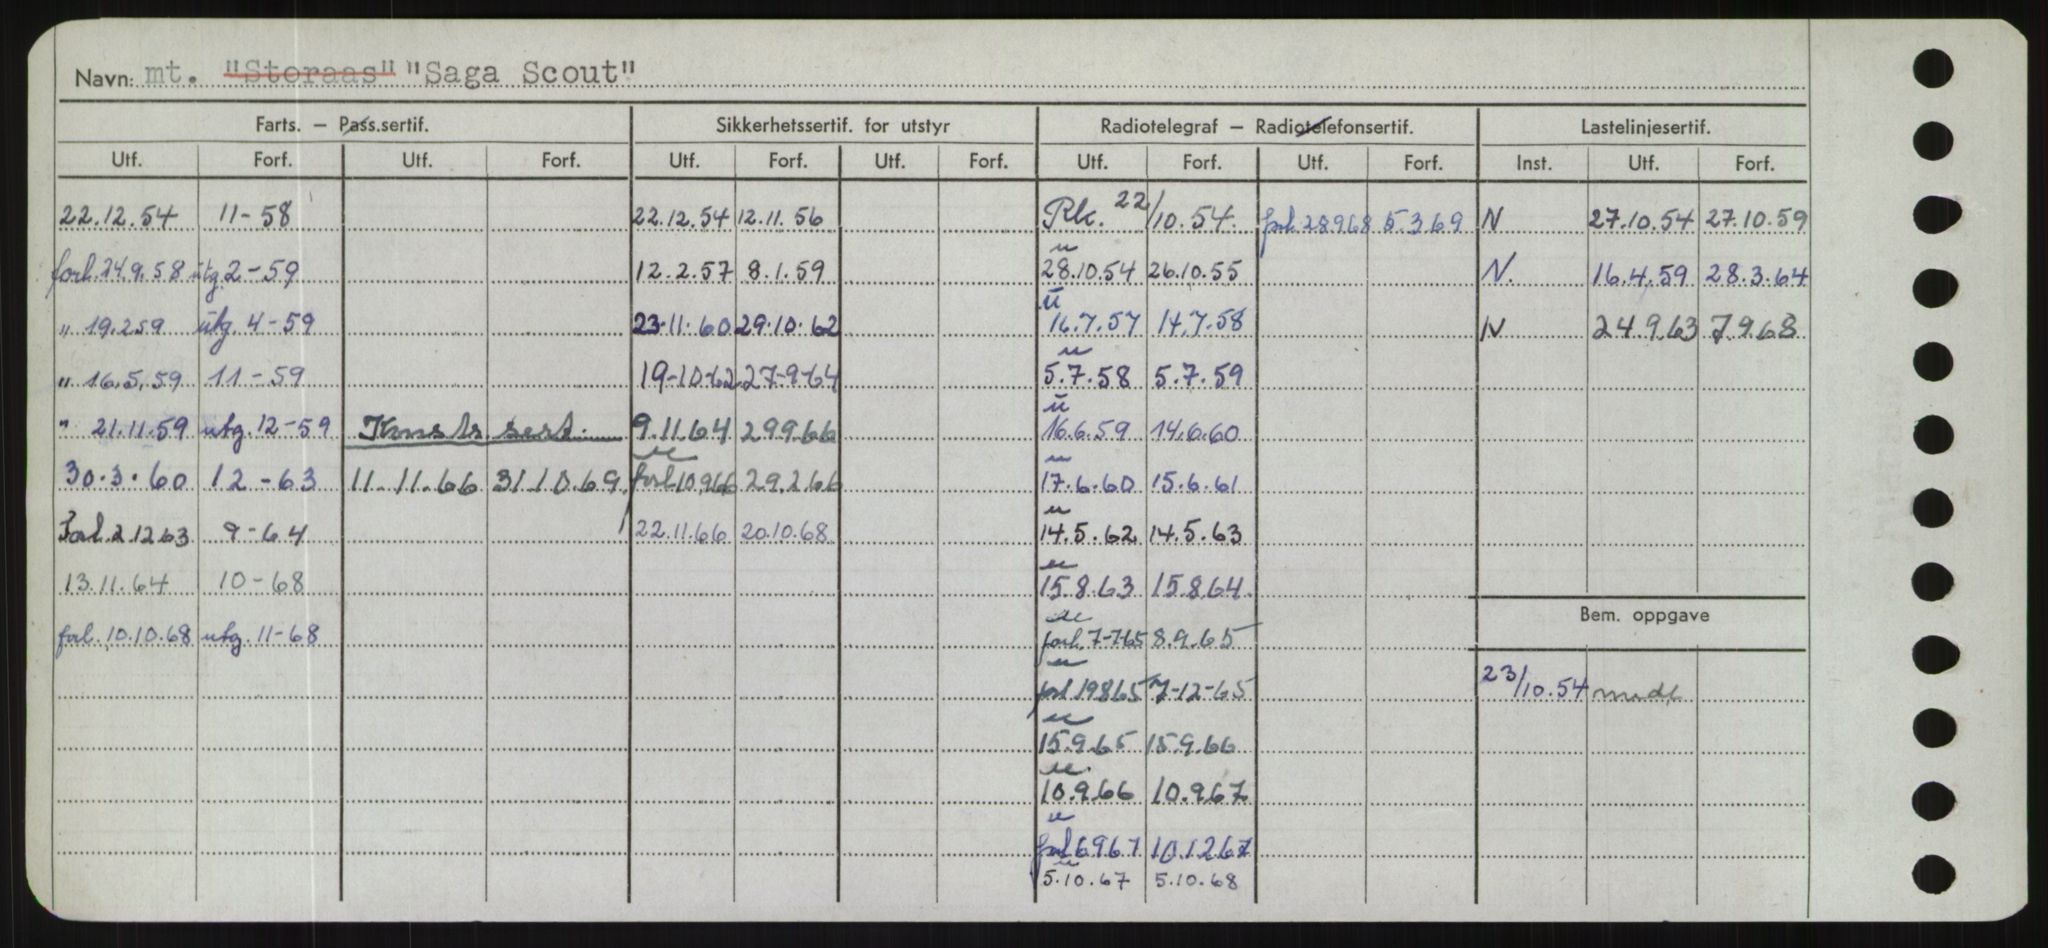 Navn: mt. "Storaas" "Saga Scout"
Farts. – Pass.sertif. Sikkerhetssertif. for utstyr Radiotelegraf – Radiotelefonsertif. Lastelinjesertif.
Utf. Forf. Utf. Forf. Utf. Forf. Utf. Forf. Utf. Forf. Utf. Forf. Inst. Utf. Forf.
22.12.54 11-58 22.12.54 12.11.56 Rk. 22/10.54. forl. 28968 5.3.69 N 27.10.54 27.10.59
forl. 24.9.58 utg. 2-59 12.2.57 8.1.59 u 28.10.54 26.10.55 N. 16.4.59 28.3.64
" 19.2.59 utg. 4-59 23.11.60 29.10.62 u 16.7.57 14.7.58 N 24.9.63 7.9.68
" 16.5.59 11-59 19-10-62 27-9-64 u 5.7.58 5.7.59
" 21.11.59 utg. 12-59 Konstr. sert. 9.11.64 29.9.66 u 16.6.59 14.6.60
30.3.60 12-63 11.11.66 31.10.69. forl. 10.9.66 29.2.66 u 17.6.60 15.6.61
Forl. 2.12.63 9-64 22.11.66 20.10.68 u 14.5.62 14.5.63
13.11.64 10-68 u 15.8.63 15.8.64
forl. 10.10.68 utg. 11-68 u forl. 7-7-65 8.9.65
Bem. oppgave
u forl 19865 7-12-65 23/10.54 mdt.
u 15.9.65 15.9.66
u 10.9.66 10.9.67
u forl 6967 10.12.67
u 5.10.67 5.10.68